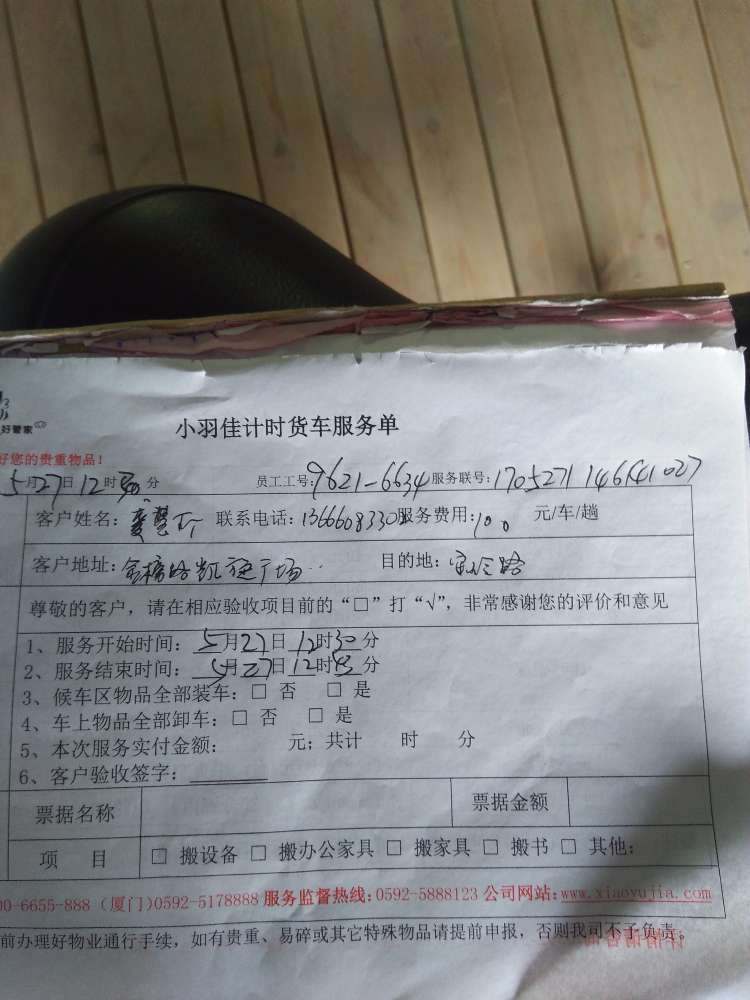 好管家
小羽佳计时货车服务单
好您的贵重物品!
5月27日12时30分 员工工号:9621-6634 服务联号:170527114641027
客户姓名: 联系电话:13666083302 服务费用:100 元/车/趟
客户地址:金榜路凯旋广场 目的地: 路
尊敬的客户，请在相应验收项目前的“□”打“√”，非常感谢您的评价和意见
1、服务开始时间: 5月27日12时30分
2、服务结束时间: 5月27日12时45分
3、候车区物品全部装车: □ 否 □ 是
4、车上物品全部卸车: □ 否 □ 是
5、本次服务实付金额: 元; 共计 时 分
6、客户验收签字:
票据名称 票据金额
项 目 □ 搬设备 □ 搬办公家具 □ 搬家具 □ 搬书 □ 其他:
00-6655-888 (厦门)0592-5178888 服务监督热线:0592-5888123 公司网站:www.xiaoyujia.com
前办理好物业通行手续，如有贵重、易碎或其它特殊物品请提前申报，否则我司不予负责。